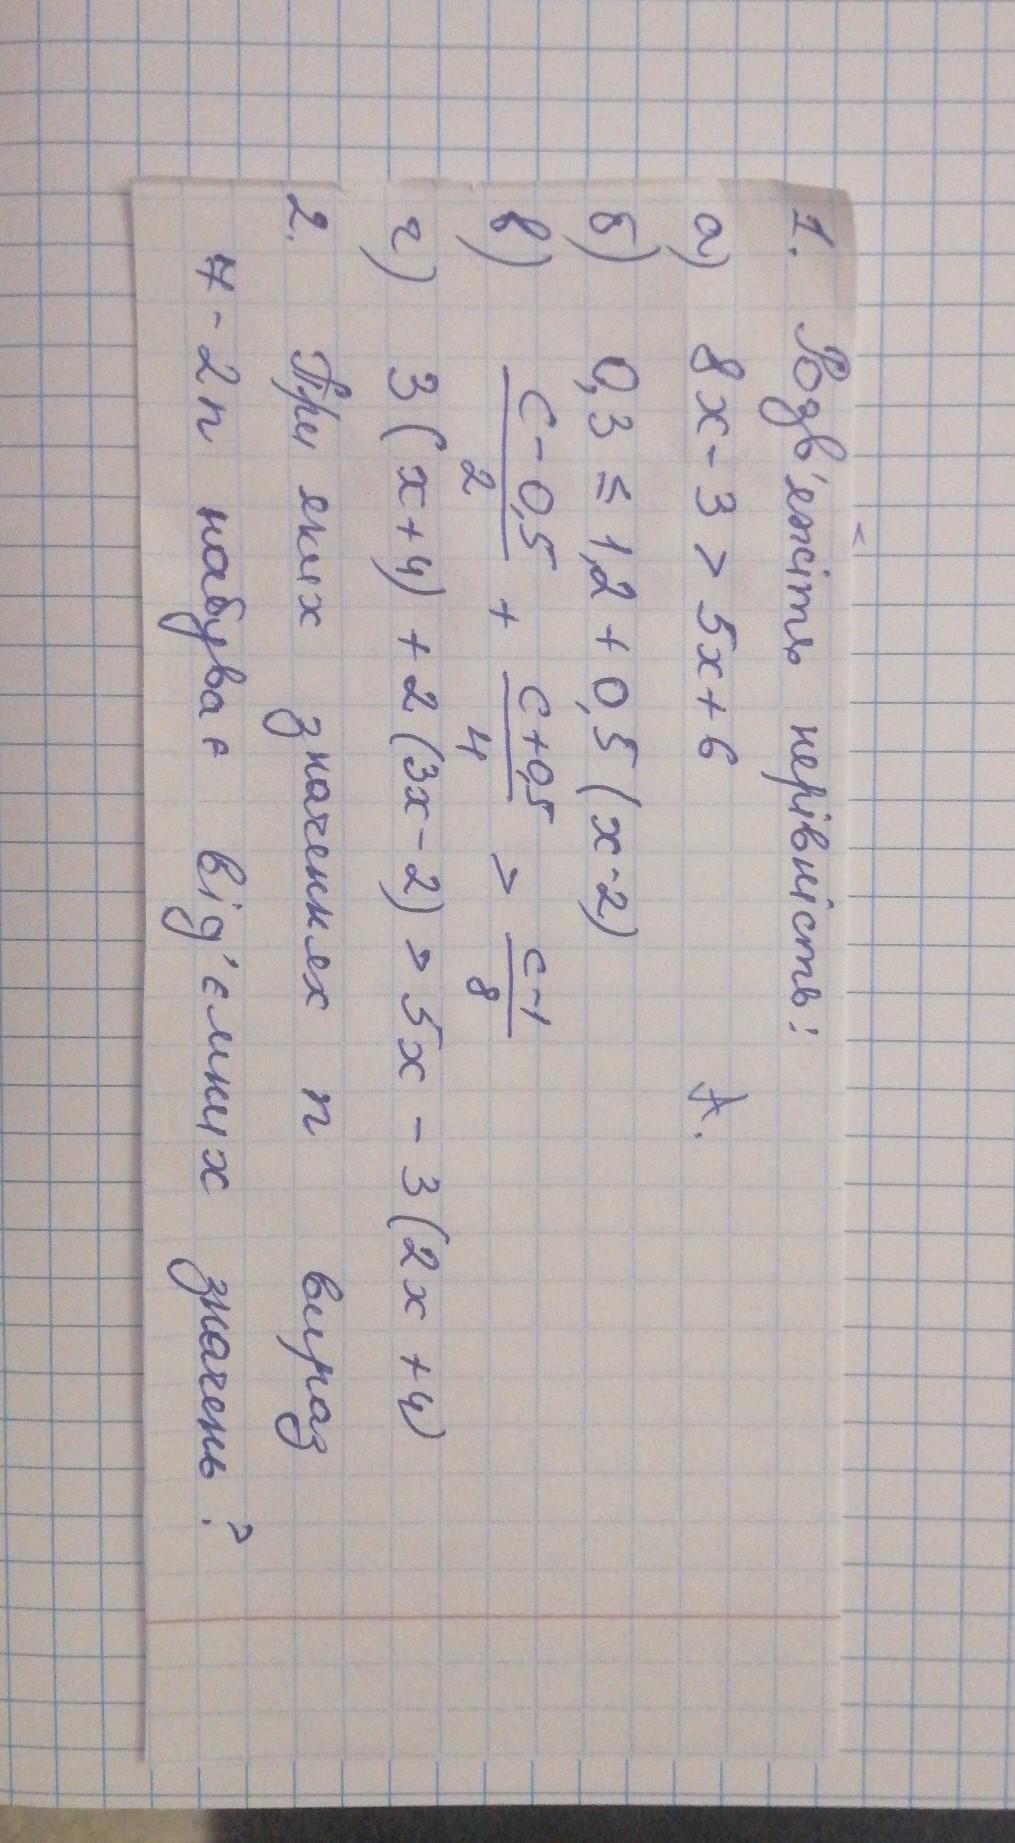 1. Розв'яжіть нерівність:
а) 8x - 3 > 5x + 6 А.
б) 0,3 ≤ 1,2 + 0,5 (x - 2)
в) (c - 0,5)/2 + (c + 0,5)/4 > (c - 1)/8
г) 3 (x + 4) + 2 (3x - 2) > 5x - 3 (2x + 4)
2. При яких значеннях n вираз
7 - 2n набуває від'ємних значень?